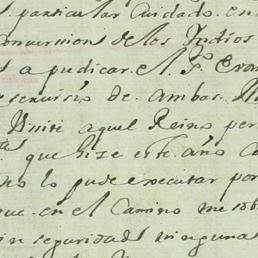 particular Cuidado en
conversion de los Indios
a pudicar el P.
servisio de ambas
Visité aquel Reino per
que hize este año
no lo pude executar por
que en el Camino me
in seguridad ninguna